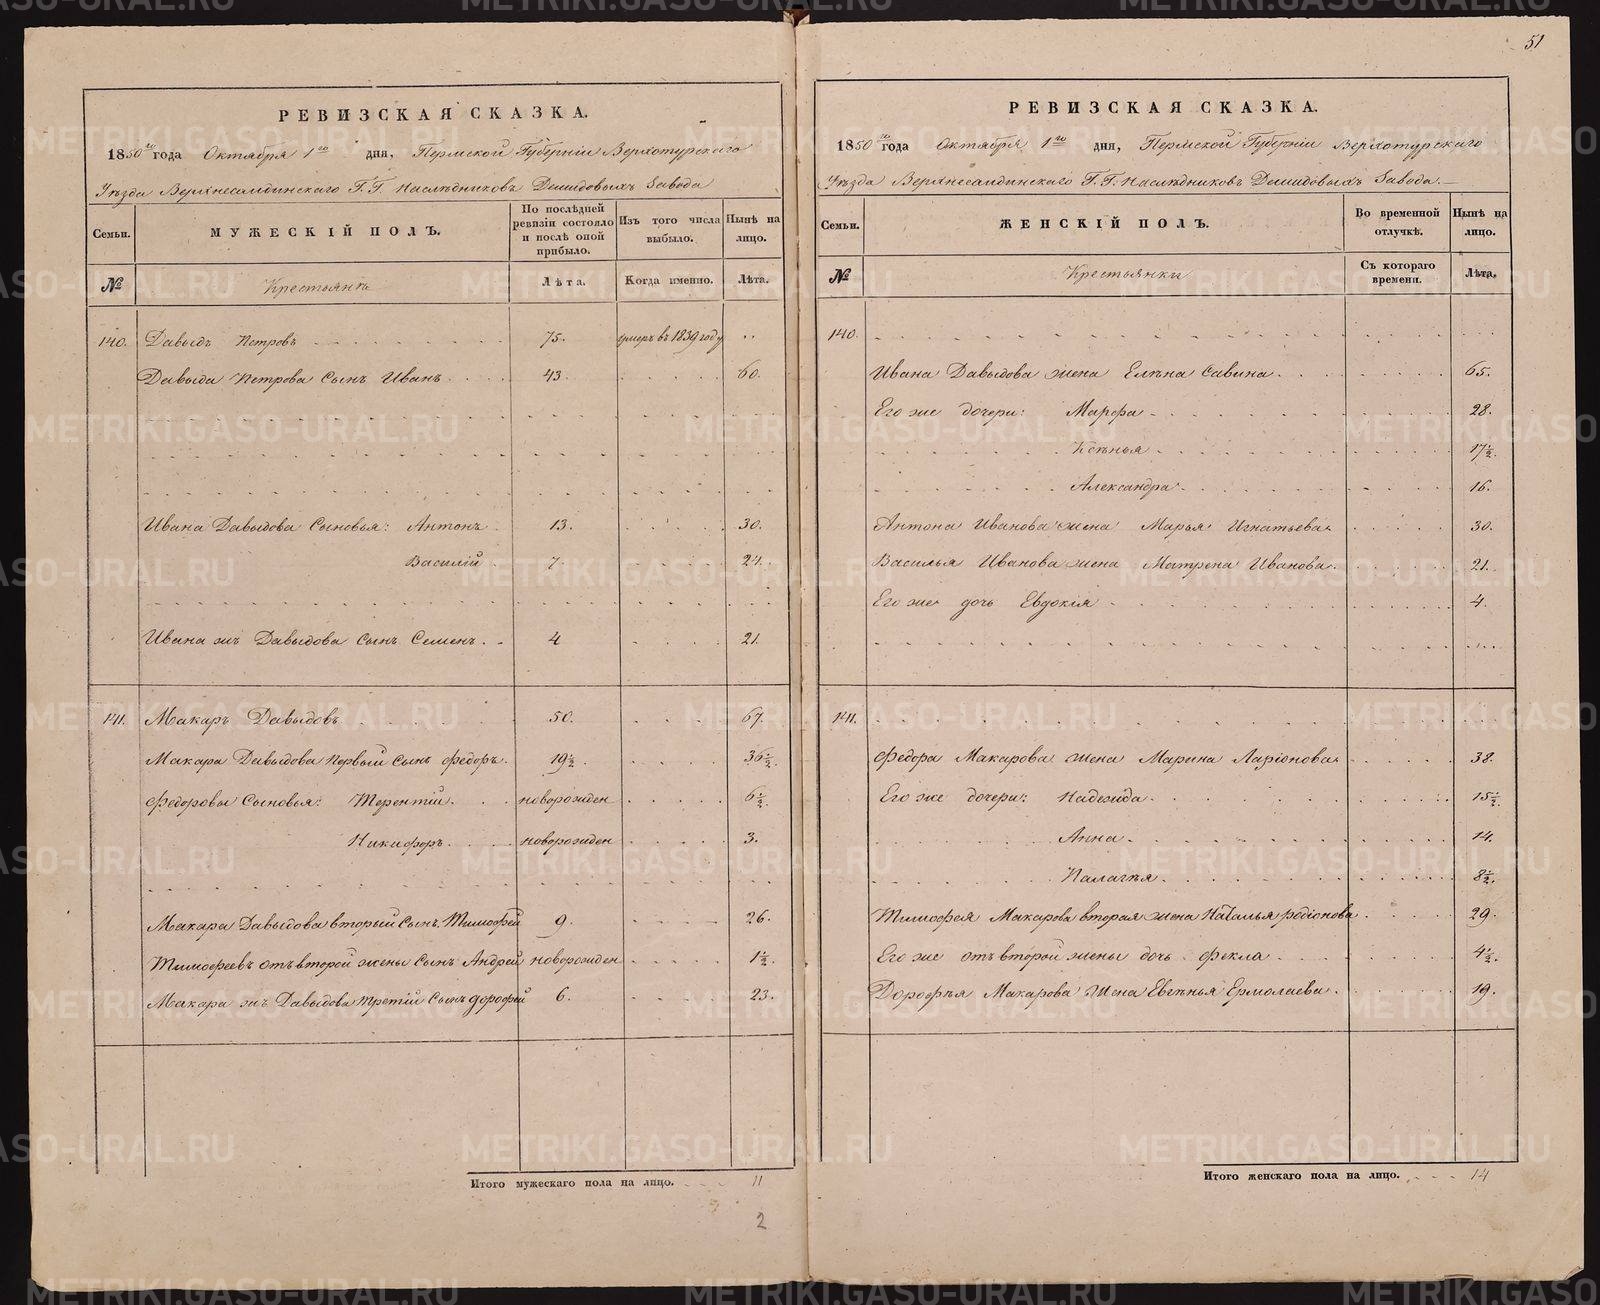 51
РЕВИЗСКАЯ СКАЗКА.
1850го года Октября 1го дня, Пермской Губерніи Верхотурскаго
Уѣзда Верхнесалдинскаго Г.Г. Наслѣдниковъ Демидовыхъ Завода
Семьи.
МУЖЕСКІЙ ПОЛЪ.
По послѣдней ревизіи состояло и послѣ оной прибыло.
Изъ того числа выбыло.
Нынѣ на лицо.
№
Крестьянъ
Лѣта.
Когда именно.
Лѣта.
140. Давыдъ Петровъ 75. умеръ въ 1839 году
Давыда Петрова Сынъ Иванъ 43. 60.
Ивана Давыдова Сыновья: Антонъ 13. 30.
Василій 7 24.
Ивана жъ Давыдова Сынъ Семенъ 4 21.
141. Макаръ Давыдовъ 50. 67.
Макара Давыдова Первый Сынъ Федоръ. 19½. 36½.
Федоровы Сыновья: Терентій. новорожден 6½.
Никифоръ. новорожден 3.
Макара Давыдова вторый Сынъ Тимофей 9. 26.
Тимофеевъ отъ второй жены Сынъ Андрей новорожден 1½.
Макара жъ Давыдова третій Сынъ дорофей 6. 23.
Итого мужескаго пола на лицо. 11
2
РЕВИЗСКАЯ СКАЗКА.
1850го года Октября 1го дня, Пермской Губерніи Верхотурскаго
Уѣзда Верхнесалдинскаго Г.Г. Наслѣдниковъ Демидовыхъ Завода.
Семьи.
ЖЕНСКІЙ ПОЛЪ.
Во временной отлучкѣ.
Нынѣ на лицо.
№
Крестьянки
Съ котораго времени.
Лѣта.
140.
Ивана Давыдова жена Елѣна Савина 65.
Его же дочери: Марфа 28.
Ксѣнья 17½.
Александра 16.
Антона Иванова жена Марья Игнатьева 30.
Василья Иванова жена Матрена Иванова. 21.
Его же дочь Евдокія 4.
141.
Федора Макарова жена Марина Ларіонова 38.
Его же дочери: Надежда 15½.
Анна 14.
Палагѣя 8½.
Тимофея Макарова вторая жена Наталья родіонова 29.
Его же отъ второй жены дочь Фекла 4½.
Дорофѣя Макарова жена Евгѣнья Ермолаева 19.
Итого женскаго пола на лицо. 14
METRIKI.GASO-URAL.RU